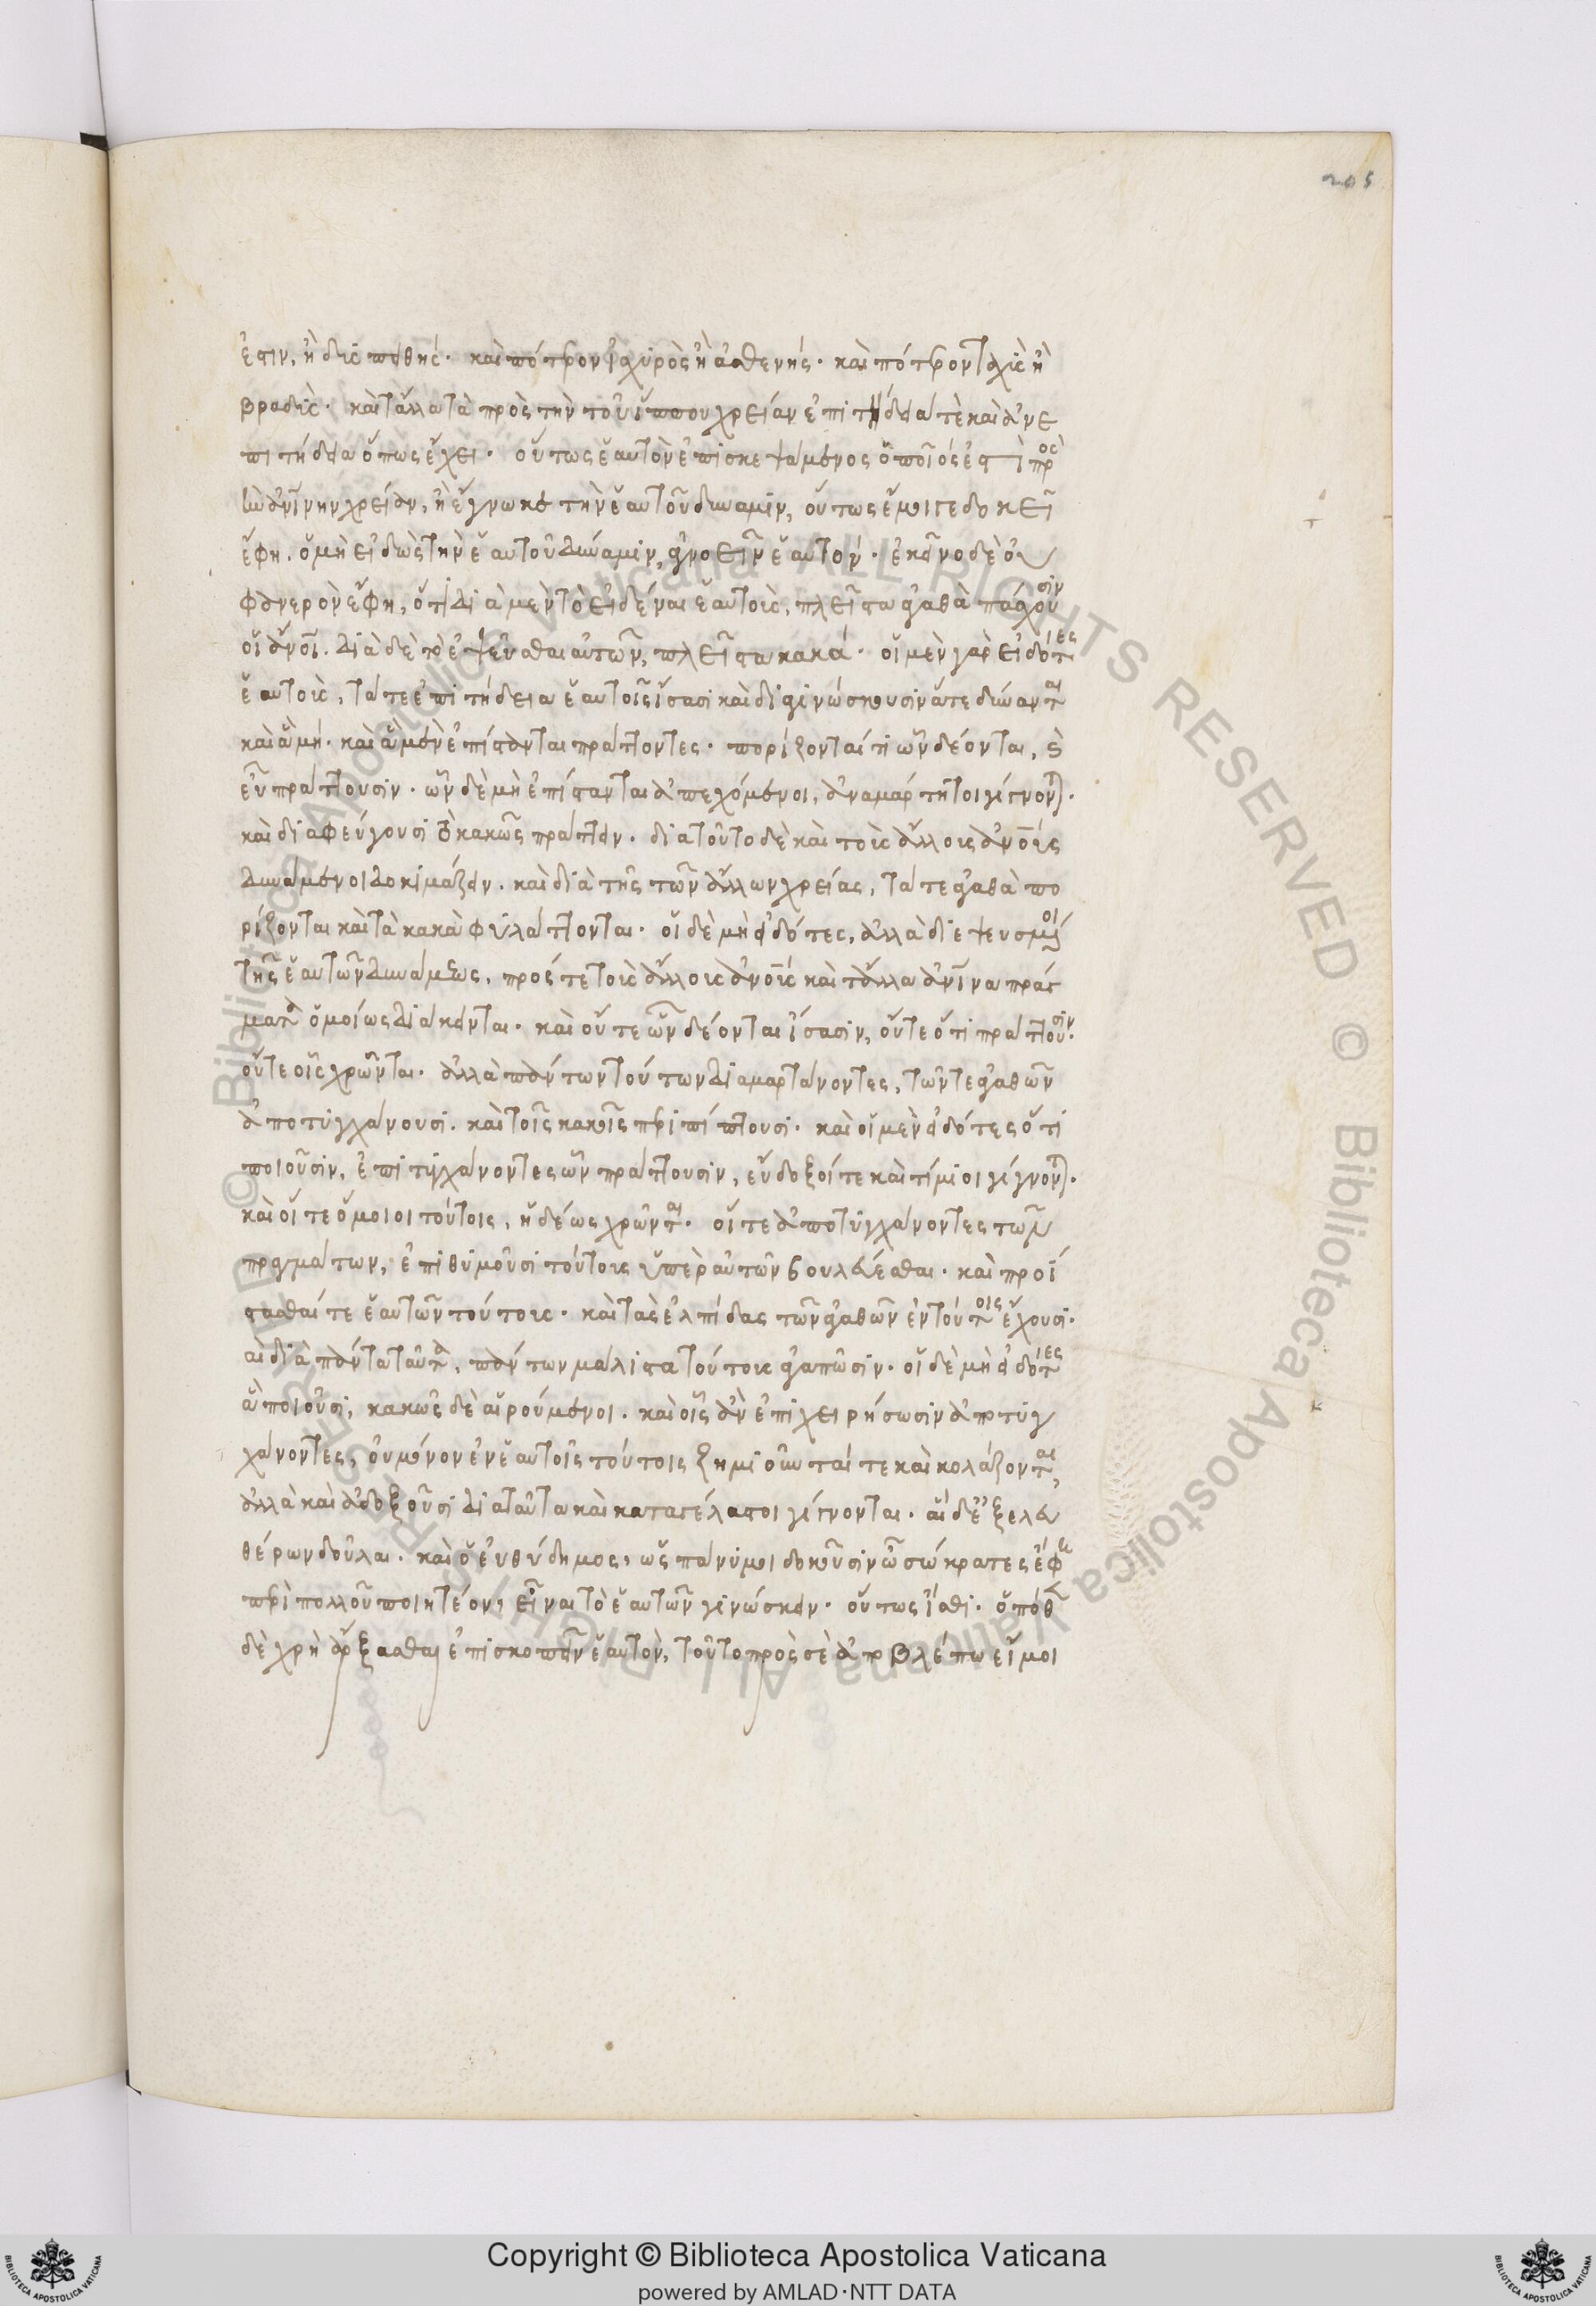 205
ἐστιν, ἢ δυσπειθής· καὶ πότερον ἰσχυρὸς ἢ ἀσθενής· καὶ πότερον ταχὺς ἢ
βραδύς· καὶ τἄλλα τὰ πρὸς τὴν τοῦ ἵππου χρείαν ἐπιτήδεια τὲ καὶ ἀνε
πιτήδεια ὅπως ἔχει· οὕτως ἑαυτὸν ἐπισκεψάμενος ὁποῖός ἐστι πρὸς
τὴν ἀνίνην χρείαν, ἢ ἔγνωκε τὴν ἑαυτοῦ δύναμιν, οὕτως ἔμοιγε δοκεῖ
ἔφη. ὁ μὴ εἰδὼς τὴν ἑαυτοῦ δύναμιν, ἀγνοεῖν ἑαυτόν· ἐκεῖνο δὲ οὐ
φανερὸν ἔφη, ὅτι διὰ μὲν τὸ εἰδέναι ἑαυτοὺς, πλεῖστα ἀγαθὰ πάσχουσιν
οἱ ἄνοι. διὰ δὲ τὸ ἐψεῦσθαι αὐτῶν, πλεῖστα κακά· οἱ μὲν γὰρ εἰδότες
ἑαυτοὺς, τά τε ἐπιτήδεια ἑαυτοῖς ἴσασι καὶ διαγινώσκουσιν ἅτε δύανται
καὶ ἃ μή· καὶ ἃ μὲν ἐπίστανται πράττοντες· πορίζονταί τι ὧν δέονται, καὶ
εὖ πράττουσιν· ὧν δὲ μὴ ἐπίστανται ἀπεχόμενοι, ἀναμάρτητοι γίγνονται·
καὶ διαφεύγουσι τὸ κακῶς πράττειν· διὰ τοῦτο δὲ καὶ τοὺς ἄλλους ἀνους
δυνάμενοι δοκιμάζειν. καὶ διὰ τῆς τῶν ἄλλων χρείας, τά τε ἀγαθὰ πο
ρίζονται καὶ τὰ κακὰ φυλάττονται· οἱ δὲ μὴ εἰδότες, ἀλλὰ διεψευσμένοι
τῆς ἑαυτῶν δυνάμεως, πρός τε τοὺς ἄλλους ἀνους καὶ τἄλλα ἀνινα πράγ
ματα ὁμοίως διάκεινται· καὶ οὔτε ὧν δέονται ἴσασιν, οὔτε ὅτι πράττουσιν·
οὔτε οἷς χρῶνται· ἀλλὰ πάντων τούτων διαμαρτάνοντες, τῶν τε ἀγαθῶν
ἀποτυγχάνουσι. καὶ τοῖς κακοῖς περιπίπτουσι· καὶ οἱ μὲν εἰδότες ὅτι
ποιοῦσιν, ἐπιτυγχάνοντες ὧν πράττουσιν, εὔδοξοί τε καὶ τίμιοι γίγνονται·
καὶ οἵ τε ὅμοιοι τούτοις, ἡδέως χρῶνται· οἵ τε ἀποτυγχάνοντες τῶν
πραγμάτων, ἐπιθυμοῦσι τούτους ὑπὲρ αὐτῶν βουλεύεσθαι· καὶ προΐ
στασθαί τε ἑαυτῶν τούτους· καὶ τὰς ἐλπίδας τῶν ἀγαθῶν ἐν τούτοις ἔχουσι·
καὶ διὰ πάντα ταῦτα, πάντων μάλιστα τούτους ἀγαπῶσιν· οἱ δὲ μὴ εἰδότες
ἃ ποιοῦσι, κακῶς δὲ αἱρούμενοι. καὶ οἷς ἂν ἐπιχειρήσωσιν ἀποτυγ
χάνοντες, οὐ μόνον ἐν ἑαυτοῖς τούτοις ζημιοῦνταί τε καὶ κολάζονται,
ἀλλὰ καὶ ἀδοξοῦσι διὰ ταῦτα καὶ καταγέλαστοι γίγνονται. αἱ δ' ἐξ ἐλευ
θέρων δοῦλαι. καὶ ὁ εὐθύδημος, ὡς πάνυ μοι δοκοῦσιν ὦ σώκρατες ἔφη
περὶ πολλοῦ ποιητέον, εἶναι τὸ ἑαυτῶν γινώσκειν· οὕτως ἴσθι· ὁπόθεν
δὲ χρὴ ἄρξασθαι ἐπισκοπεῖν ἑαυτὸν, τοῦτο πρὸς σὲ ἀποβλέπω εἴ μοι
© Biblioteca Apostolica Vaticana ALL RIGHTS RESERVED
Copyright © Biblioteca Apostolica Vaticana
powered by AMLAD·NTT DATA
BIBLIOTECA APOSTOLICA VATICANA